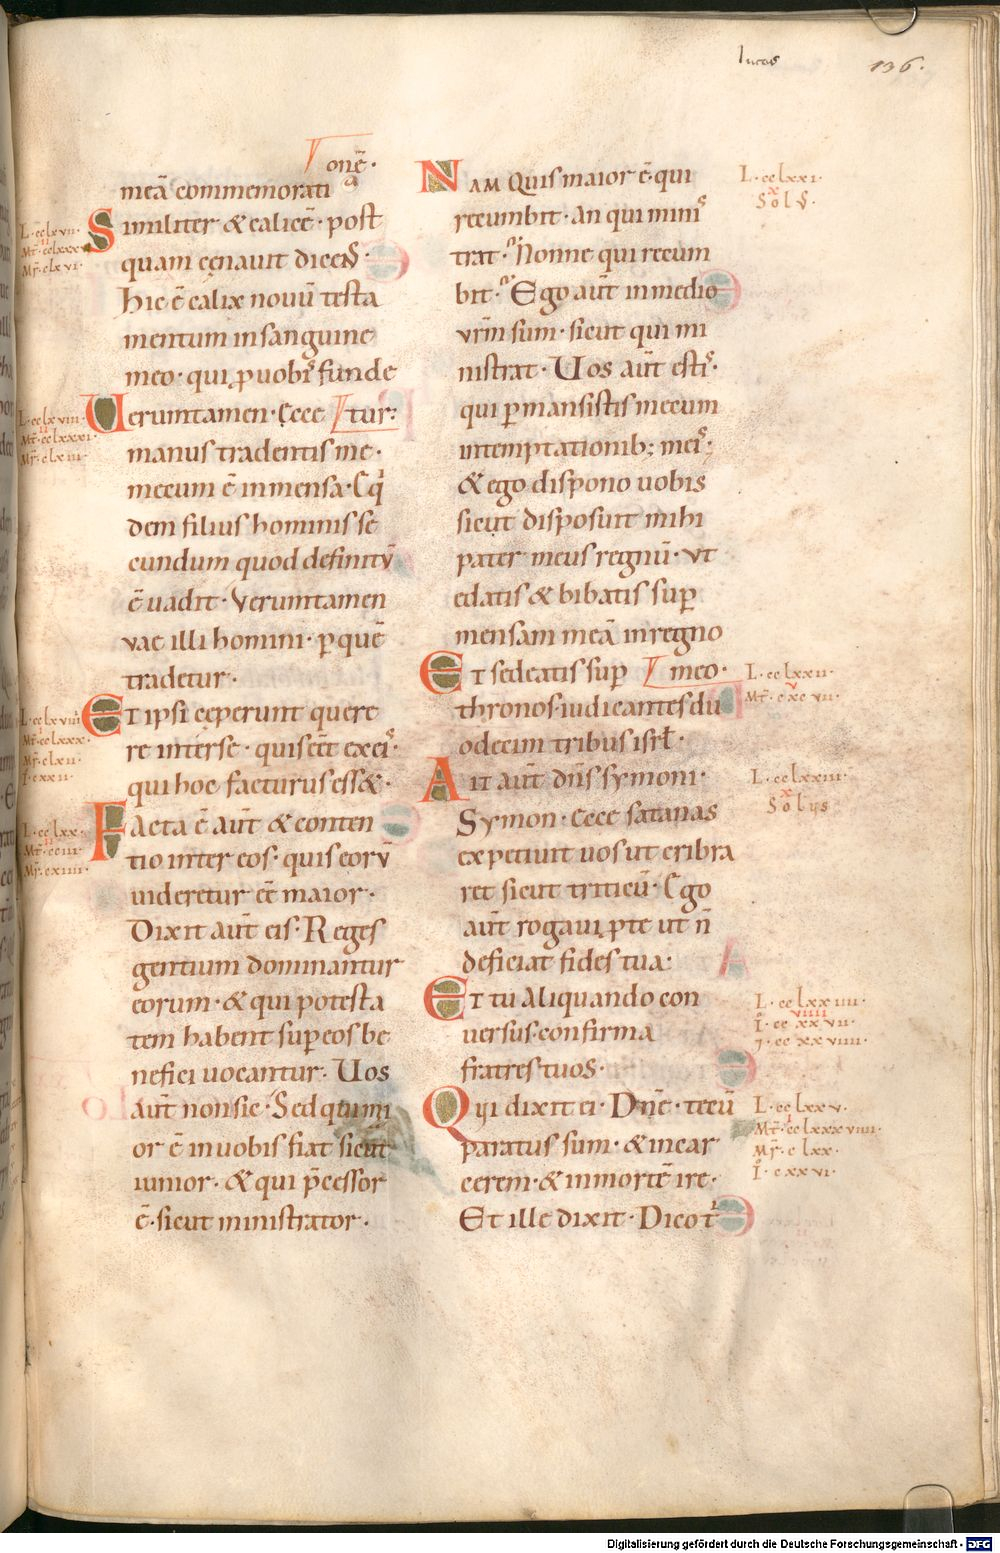 lucas
136.
onē·
meā commemorati
Similiter & calicē· post
quam cęnauit dicens·
hic ē calix nouū testa
mentum in sanguine
meo· qui ꝓ uobis funde
Ueruntamen· Ecce tur:
manus tradentis me·
mecum ē in mensa· Et qͥ
dem filius hominis se
cundum quod definitū
ē uadit· Veruntamen
vae illi homini· ꝑ quē
tradetur·
Et ipsi cęperunt quere
re inter se· quis eēt ex eis·
qui hoc facturus ess&·
Facta ē aūt & conten
tio inter eos· quis eorū
uideretur eē maior·
Dixit aūt eis· Reges
gentium dominantur
eorum· & qui potesta
tem habent suꝑ eos be
nefici uocantur· Uos
aūt non sic· Sed qui mai
or ē in uobis fiat sicut
iunior· & qui p̄cessor
ē· sicut ministrator·
L· cclxvii·
L· cclxviii·
L· cclxx·
Nam quis maior ē· qui
recumbit· an qui minis
trat· Nonne qui recum
bit· Ego aūt in medio
vr̄m sum· sicut qui mi
nistrat· Uos aūt estis·
qui ꝑmansistis mecum
in temptationib; meis·
& ego dispono uobis
sicut disposuit mihi
pater meus regnū· vt
edatis & bibatis suꝑ
mensam meā in regno
Et sedeatis suꝑ meo·
thronos· iudicantes du
odecim tribus isrł·
Ait aūt dn̄s symoni·
Symon· Ecce satanas
expetiuit uos ut cribra
ret sicut triticū· Ego
aūt rogaui ꝓ te ut n̄
deficiat fides tua·
Et tu aliquando con
uersus· confirma
fratres tuos·
Qui dixit ei· Dn̄e· tecū
paratus sum· & in car
cerem· & in mortē ire·
Et ille dixit· Dico tͥ
L· cclxxi·
L· cclxxii·
L· cclxxiii·
L· cclxxiiii·
L· cclxxv·
Digitalisierung gefördert durch die Deutsche Forschungsgemeinschaft - DFG